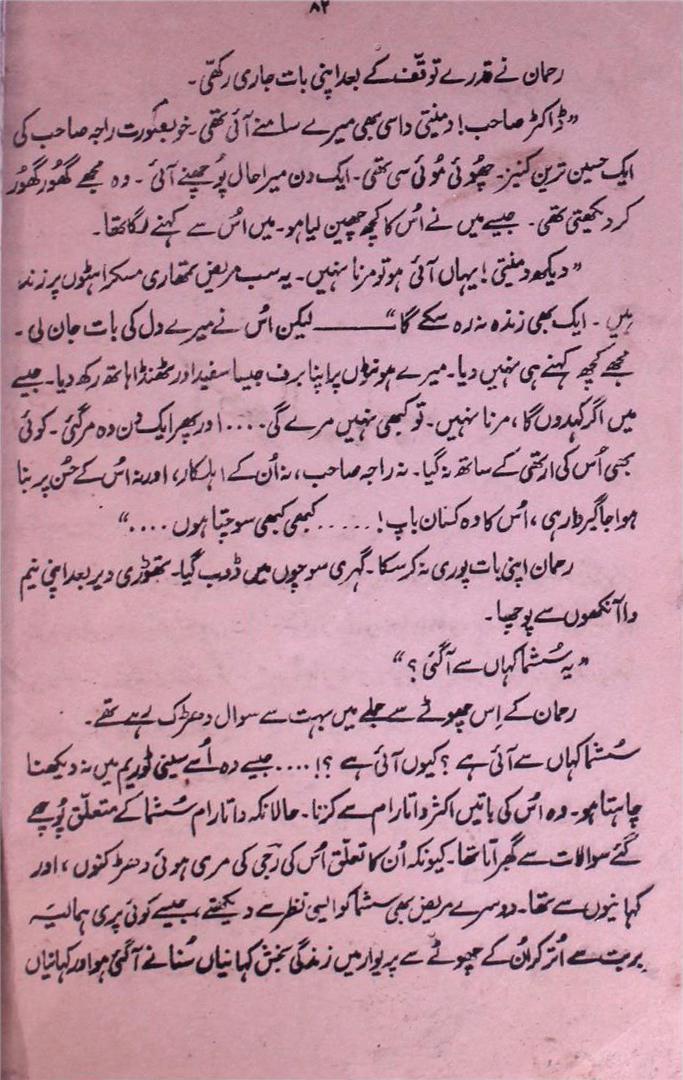 ۸۲
رحمان نے قدرے توقّف کے بعد اپنی بات جاری رکھّی۔
”ڈاکٹر صاحب! دمنیتی داسی بھی میرے سامنے آئی تھی۔ خوبصورت راجہ صاحب کی
ایک حسین ترین کنیز۔ چھُوئی مُوئی سی تھی۔ ایک دن میرا حال پوُچھنے آئی۔ وہ مجھے گھُور گھُور
کر دیکھتی تھی۔ جیسے میں نے اُس کا کچھ چھین لیا ہو۔ میں اُس سے کہنے لگا تھا۔
”دیکھ دمنیتی! یہاں آئی ہو تو مرنا نہیں۔ یہ سب مریض تمھاری مسکراہٹوں پر زندہ
ہیں۔ ایک بھی زندہ نہ رہ سکے گا“ ——— لیکن اُس نے میرے دل کی بات جان لی۔
مجھے کچھ کہنے ہی نہیں دیا۔ میرے ہونٹوں پر اپنا برف جیسا سفید اور ٹھنڈا ہاتھ رکھ دیا۔ جیسے
میں اگر کہدوں گا، مرنا نہیں۔ تو کبھی نہیں مرے گی.... اور پھر ایک دن وہ مر گئی۔ کوئی
بھی اُس کی ارتھی کے ساتھ نہ گیا۔ نہ راجہ صاحب، نہ اُن کے اہلکار، اور نہ اس کے حُسن پر بنا
ہوا جاگیردار ہی، اُس کا وہ کسان باپ! ..... کبھی کبھی سوچتا ہوں ....“
رحمان اپنی بات پوری نہ کر سکا۔ گہری سوچوں میں ڈوب گیا۔ تھوڑی دیر بعد اپنی نیم
وا آنکھوں سے پوچھا۔
”یہ سُشما کہاں سے آگئی؟“
رحمان کے اِس چھوٹے سے جملے میں بہت سے سوال دھڑک رہے تھے۔
سُشما کہاں سے آئی ہے؟ کیوں آئی ہے؟! .... جیسے وہ اُسے سینی ٹوریم میں نہ دیکھنا
چاہتا ہو۔ وہ اس کی باتیں اکثر داتا رام سے کرتا۔ حالانکہ داتا رام سُشما کے متعلّق پُوچھے
گئے سوالات سے گھبراتا تھا۔ کیونکہ اُن کا تعلّق اُس کی رَجی کی مری ہوئی دھڑکنوں، اور
کہانیوں سے تھا۔ دوسرے مریض بھی سشما کو ایسی نظر سے دیکھتے، جیسے کوئی پری ہمالیہ
پربت سے اُتر کر اُن کے چھوٹے سے پریوار میں زندگی بخش کہانیاں سُنانے آگئی ہو اور کہانیاں